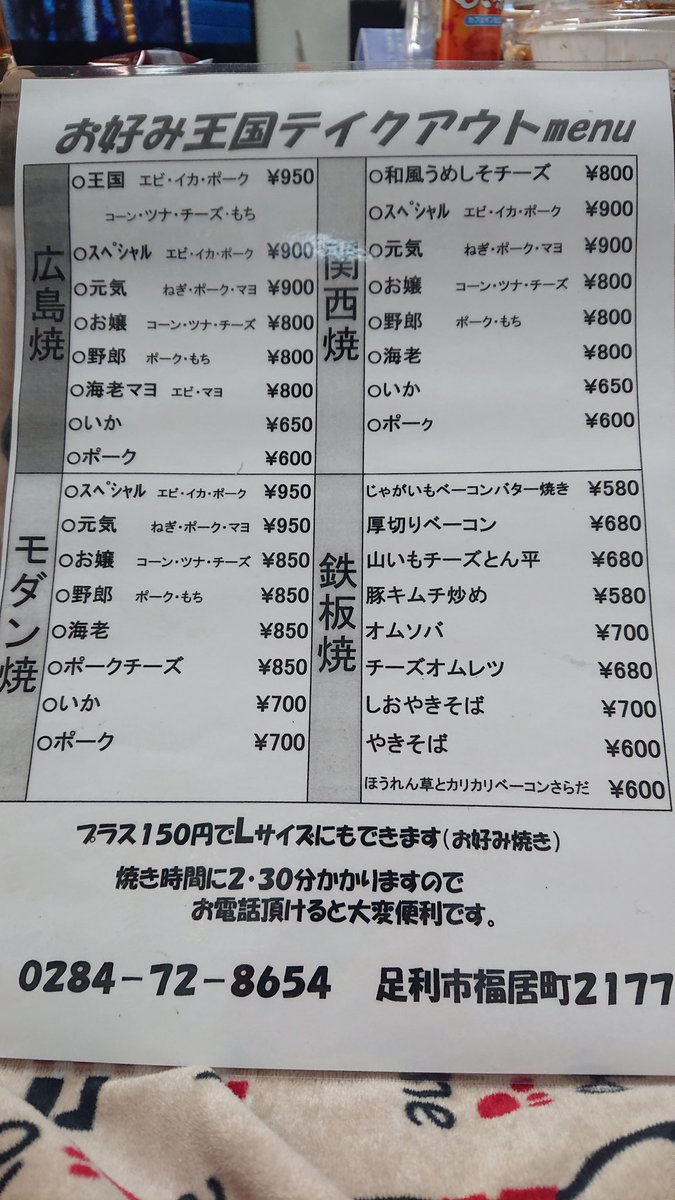 お好み王国テイクアウトmenu
広島焼
○王国 エビ・イカ・ポーク ¥950
コーン・ツナ・チーズ・もち
○スペシャル エビ・イカ・ポーク ¥900
○元気 ねぎ・ポーク・マヨ ¥900
○お嬢 コーン・ツナ・チーズ ¥800
○野郎 ポーク・もち ¥800
○海老マヨ エビ・マヨ ¥800
○いか ¥650
○ポーク ¥600
関西焼
○和風うめしそチーズ ¥800
○スペシャル エビ・イカ・ポーク ¥900
○元気 ねぎ・ポーク・マヨ ¥900
○お嬢 コーン・ツナ・チーズ ¥800
○野郎 ポーク・もち ¥800
○海老 ¥800
○いか ¥650
○ポーク ¥600
モダン焼
○スペシャル エビ・イカ・ポーク ¥950
○元気 ねぎ・ポーク・マヨ ¥950
○お嬢 コーン・ツナ・チーズ ¥850
○野郎 ポーク・もち ¥850
○海老 ¥850
○ポークチーズ ¥850
○いか ¥700
○ポーク ¥700
鉄板焼
じゃがいもベーコンバター焼き ¥580
厚切りベーコン ¥680
山いもチーズとん平 ¥680
豚キムチ炒め ¥580
オムソバ ¥700
チーズオムレツ ¥680
しおやきそば ¥700
やきそば ¥600
ほうれん草とカリカリベーコンさらだ ¥600
プラス150円でLサイズにもできます(お好み焼き)
焼き時間に2・30分かかりますので
お電話頂けると大変便利です。
0284-72-8654 足利市福居町2177